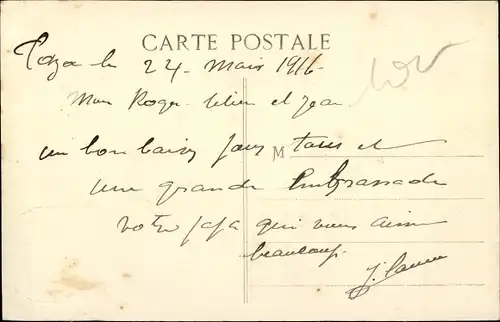 CARTE POSTALE
Taza le 24 Mars 1916
Mon Roger et Jean
un bon baiser pour tous et
M
une grande Embrassade
votre papa qui vous aime
beaucoup.